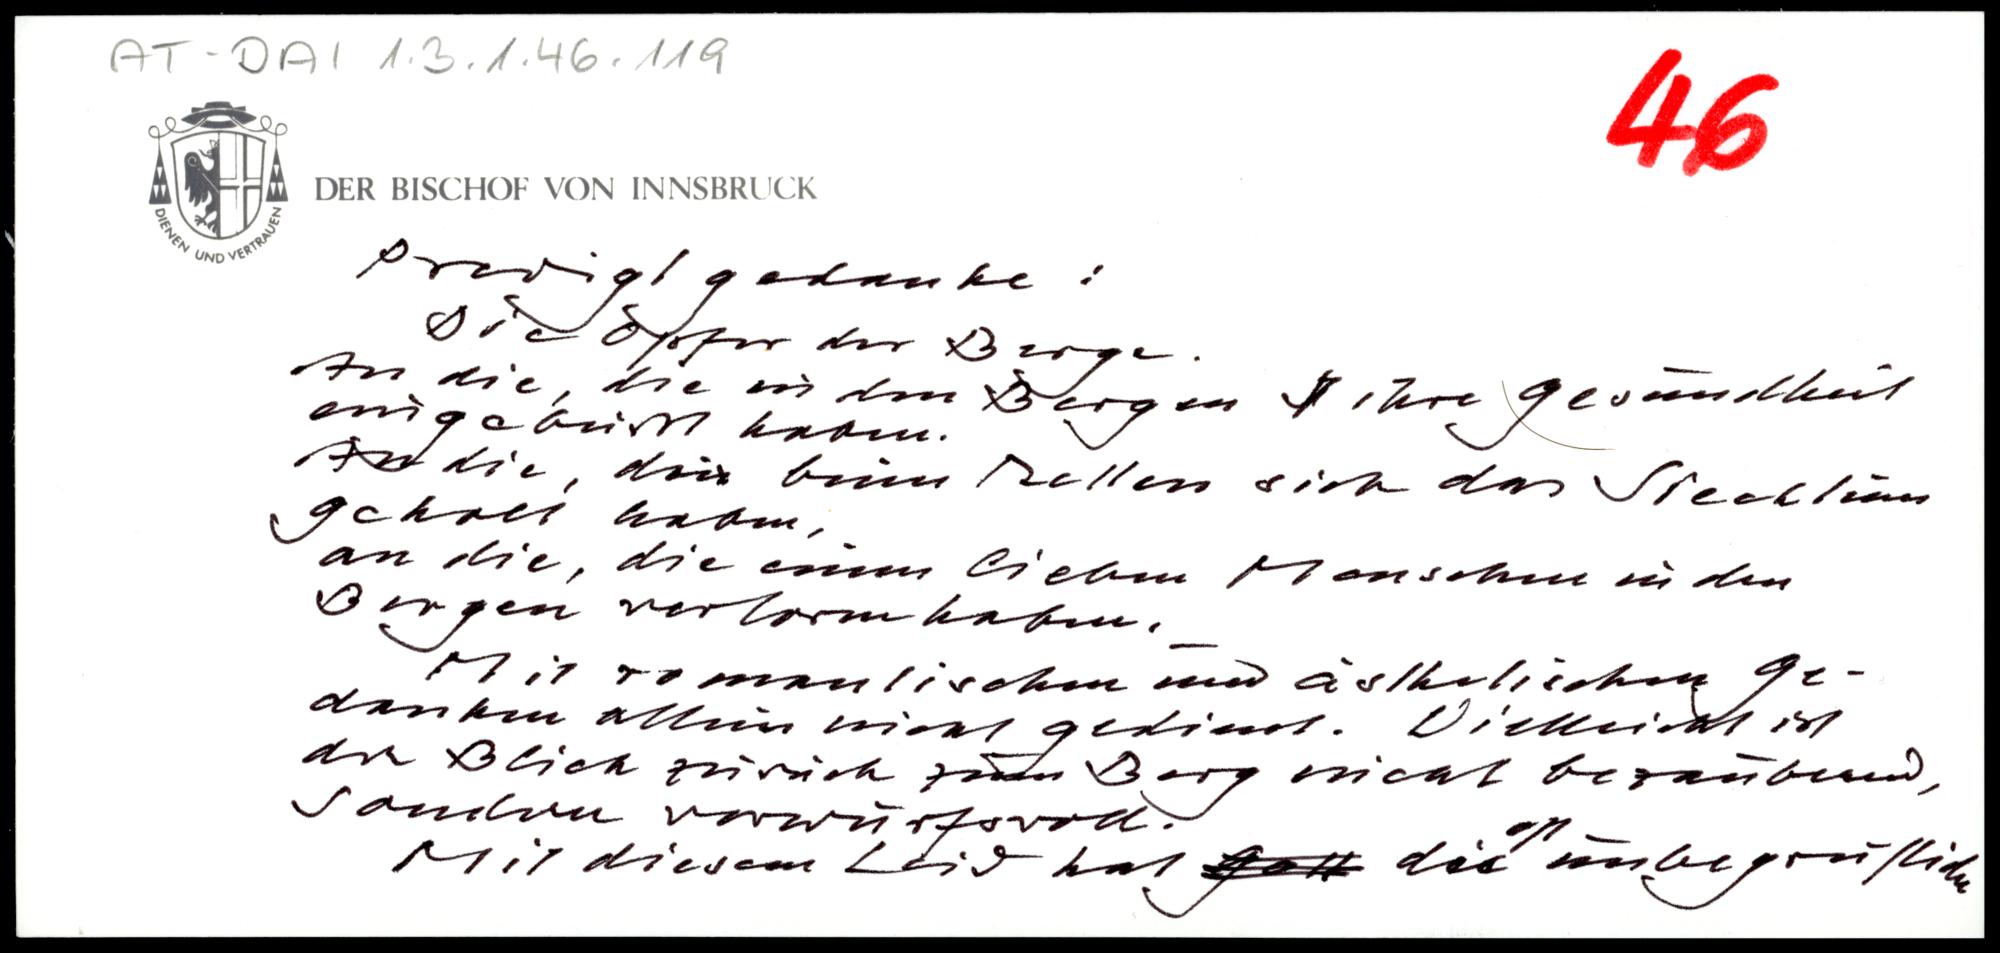 AT-DAI 1.3.1.46.119
46
DIENEN UND VERTRAUEN
DER BISCHOF VON INNSBRUCK
Predigtgedanke:
Die Opfer der Berge.
An die, die in den Bergen ihre Gesundheit
eingebüsst haben.
An die, die beim Retten sich das Siechtum
geholt haben,
an die, die einen lieben Menschen in den
Bergen verloren haben.
Mit romantischen und ästhetischen Ge-
danken allein nicht gedient. Vielleicht ist
der Blick zurück zum Berg nicht bezaubernd,
sondern vorwurfsvoll.
Mit diesem Leid hat Gott die oft unbegreifliche